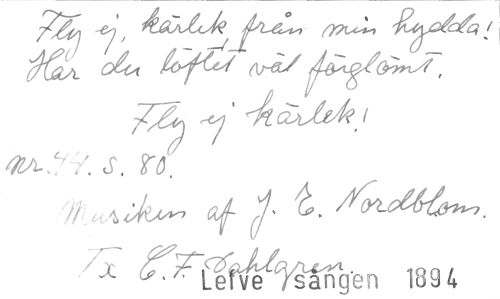 Fly ej, kärlek, från min hydda!
Har du löftet väl förglömt.
Fly ej kärlek!
nr. 44. s. 80.
Musiken af J. E. Nordblom.
Tx C. F. Dahlgren.
Lefve sången 1894